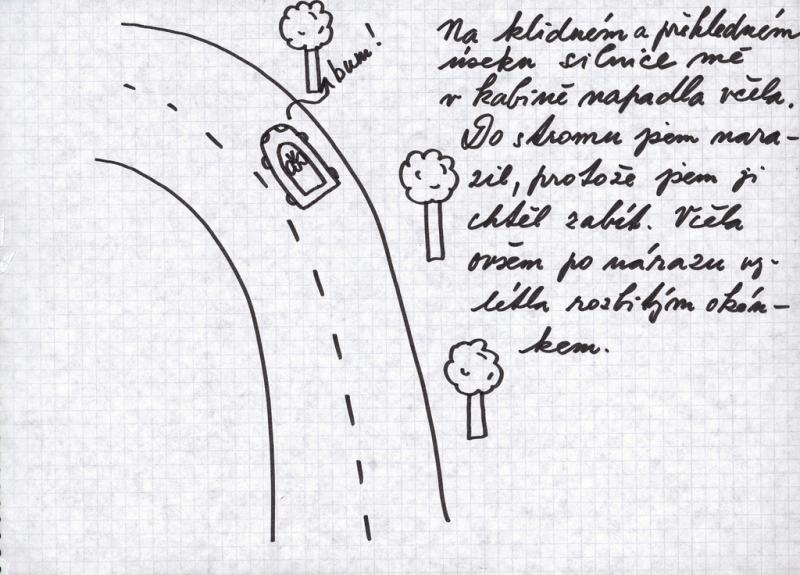 bum!
Na klidném a přehledném
úseku silnice mě
v kabině napadla včela.
Do stromu jsem nara-
zil, protože jsem ji
chtěl zabít. Včela
ovšem po nárazu vy-
létla rozbitým okén-
kem.